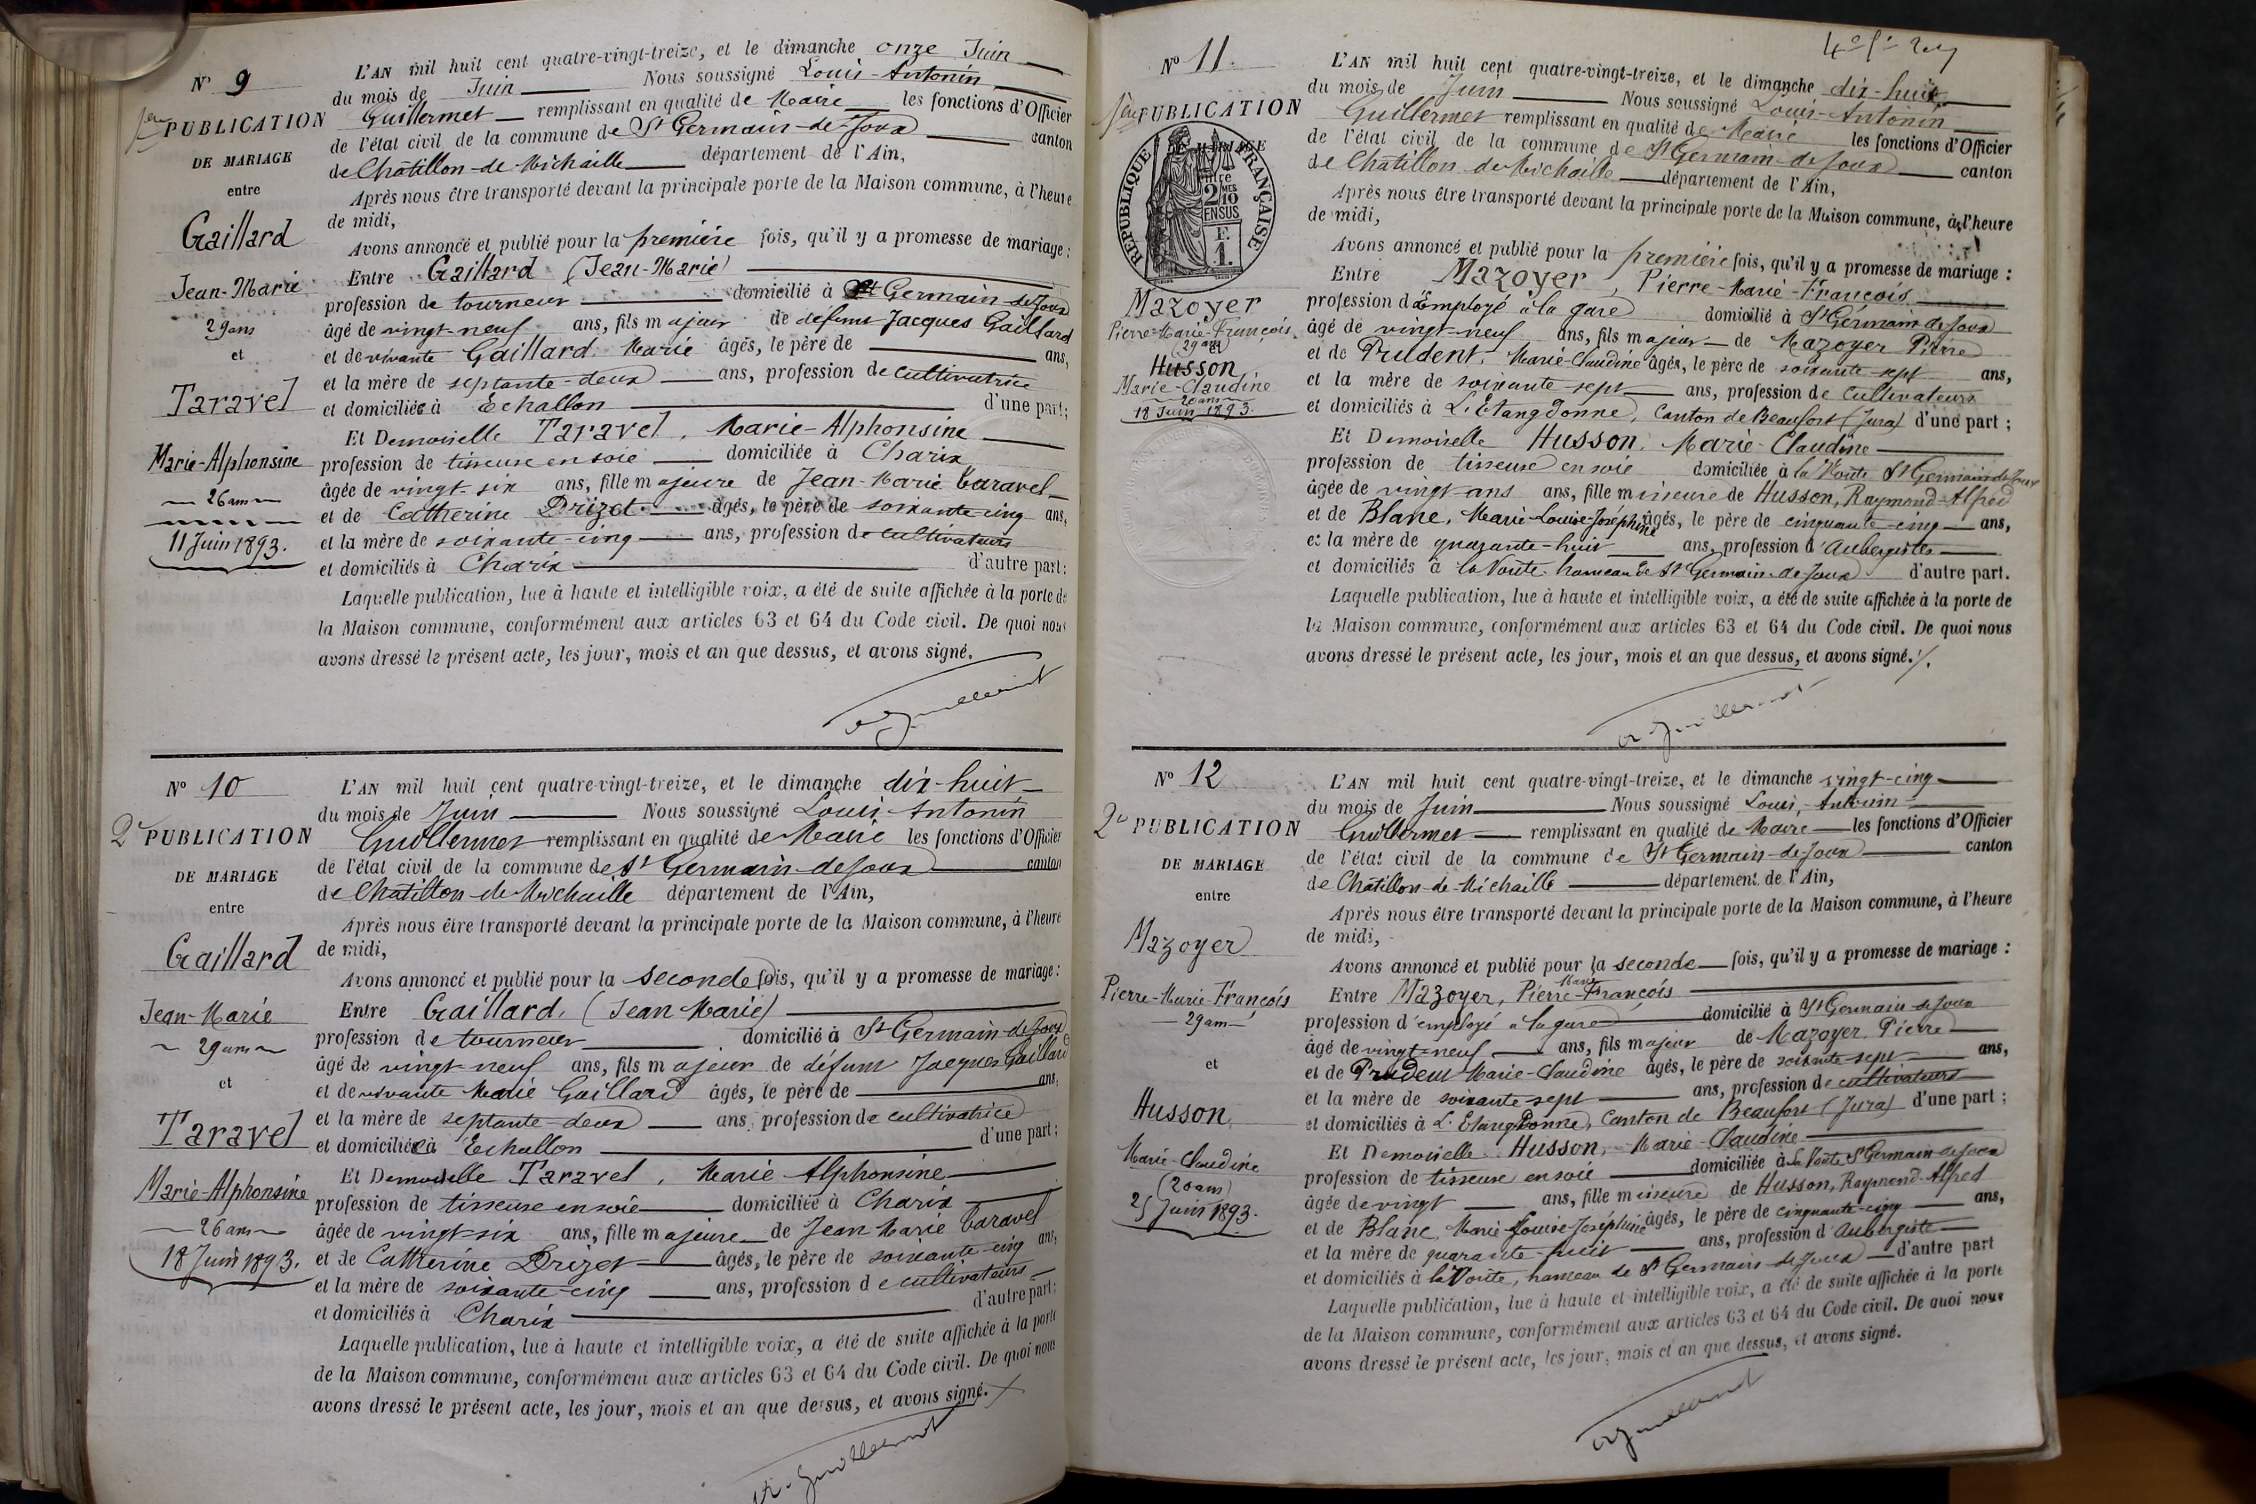 N° 9
1ère PUBLICATION
DE MARIAGE
entre
Gaillard
Jean-Marie
29 ans
et
Taravel
Marie-Alphonsine
26 ans
11 Juin 1893.
L'AN mil huit cent quatre-vingt-treize, et le dimanche onze Juin
du mois de Juin Nous soussigné Louis-Antonin
Guillermet remplissant en qualité de Maire les fonctions d'Officier
de l'état civil de la commune de St Germain-de-Joux canton
de Châtillon-de-Michaille département de l'Ain,
Après nous être transporté devant la principale porte de la Maison commune, à l'heure
de midi,
Avons annoncé et publié pour la première fois, qu'il y a promesse de mariage :
Entre Gaillard (Jean-Marie)
profession de tourneur domicilié à St Germain-de-Joux
âgé de vingt-neuf ans, fils majeur de défunt Jacques Gaillard
et de vivante Gaillard Marie âgés, le père de ans,
et la mère de septante-deux ans, profession de cultivatrice
et domiciliée à Echallon d'une part;
Et Demoiselle Taravel, Marie-Alphonsine
profession de tisseuse en soie domiciliée à Charix
âgée de vingt-six ans, fille majeure de Jean-Marie Taravel
et de Catherine Drizet âgés, le père de soixante-cinq ans,
et la mère de soixante-cinq ans, profession de cultivateurs
et domiciliés à Charix d'autre part:
Laquelle publication, lue à haute et intelligible voix, a été de suite affichée à la porte de
la Maison commune, conformément aux articles 63 et 64 du Code civil. De quoi nous
avons dressé le présent acte, les jour, mois et an que dessus, et avons signé.
Guillermet
N° 10
2e PUBLICATION
DE MARIAGE
entre
Gaillard
Jean-Marie
29 ans
et
Taravel
Marie-Alphonsine
26 ans
18 Juin 1893.
L'AN mil huit cent quatre-vingt-treize, et le dimanche dix-huit
du mois de Juin Nous soussigné Louis-Antonin
Guillermet remplissant en qualité de Maire les fonctions d'Officier
de l'état civil de la commune de St Germain-de-Joux canton
de Châtillon-de-Michaille département de l'Ain,
Après nous être transporté devant la principale porte de la Maison commune, à l'heure
de midi,
Avons annoncé et publié pour la seconde fois, qu'il y a promesse de mariage :
Entre Gaillard, (Jean Marie)
profession de tourneur domicilié à St Germain-de-Joux
âgé de vingt-neuf ans, fils majeur de défunt Jacques Gaillard
et de vivante Marie Gaillard âgés, le père de ans,
et la mère de septante-deux ans, profession de cultivatrice
et domiciliée à Echallon d'une part;
Et Demoiselle Taravel, Marie Alphonsine
profession de tisseuse en soie domiciliée à Charix
âgée de vingt-six ans, fille majeure de Jean Marie Taravel
et de Catherine Drizet âgés, le père de soixante-cinq ans,
et la mère de soixante-cinq ans, profession de cultivateurs
et domiciliés à Charix d'autre part:
Laquelle publication, lue à haute et intelligible voix, a été de suite affichée à la porte
de la Maison commune, conformément aux articles 63 et 64 du Code civil. De quoi nous
avons dressé le présent acte, les jour, mois et an que dessus, et avons signé.
Guillermet
N° 11.
1ère PUBLICATION
RÉPUBLIQUE FRANÇAISE
2/10 EN SUS
F. 1.
Mazoyer
Pierre-Marie-François
29 ans
et
Husson
Marie-Claudine
20 ans
18 Juin 1893.
L'AN mil huit cent quatre-vingt-treize, et le dimanche dix-huit
du mois de Juin Nous soussigné Louis-Antonin
Guillermet remplissant en qualité de Maire les fonctions d'Officier
de l'état civil de la commune de St Germain-de-Joux canton
de Châtillon-de-Michaille département de l'Ain,
Après nous être transporté devant la principale porte de la Maison commune, à l'heure
de midi,
Avons annoncé et publié pour la première fois, qu'il y a promesse de mariage :
Entre Mazoyer, Pierre-Marie-François
profession d'Employé à la gare domicilié à St Germain de Joux
âgé de vingt-neuf ans, fils majeur de Mazoyer Pierre
et de Prudent, Marie-Claudine âgés, le père de soixante-sept ans,
et la mère de soixante-sept ans, profession de Cultivateurs
et domiciliés à L'Etang Donne, Canton de Beaufort (Jura) d'une part ;
Et Demoiselle Husson, Marie-Claudine
profession de tisseuse en soie domiciliée à la Voute St Germain de Joux
âgée de vingt ans ans, fille mineure de Husson, Raymond-Alfred
et de Blanc, Marie-Louise-Joséphine âgés, le père de cinquante-cinq ans,
et la mère de quarante-huit ans, profession d'Aubergistes
et domiciliés à la Voute hameau de St Germain-de-Joux d'autre part.
Laquelle publication, lue à haute et intelligible voix, a été de suite affichée à la porte de
la Maison commune, conformément aux articles 63 et 64 du Code civil. De quoi nous
avons dressé le présent acte, les jour, mois et an que dessus, et avons signé.
Guillermet
N° 12
2e PUBLICATION
DE MARIAGE
entre
Mazoyer
Pierre-Marie-François
29 ans
et
Husson
Marie-Claudine
(20 ans)
25 Juin 1893.
L'AN mil huit cent quatre-vingt-treize, et le dimanche vingt-cinq
du mois de Juin Nous soussigné Louis-Antonin
Guillermet remplissant en qualité de Maire les fonctions d'Officier
de l'état civil de la commune de St Germain-de-Joux canton
de Châtillon-de-Michaille département de l'Ain,
Après nous être transporté devant la principale porte de la Maison commune, à l'heure
de midi,
Avons annoncé et publié pour la seconde fois, qu'il y a promesse de mariage :
Entre Mazoyer, Pierre-Marie-François
profession d'employé à la gare domicilié à St Germain-de-Joux
âgé de vingt-neuf ans, fils majeur de Mazoyer Pierre
et de Prudent Marie-Claudine âgés, le père de soixante sept ans,
et la mère de soixante-sept ans, profession de cultivateurs
et domiciliés à L'Etang Donne, Canton de Beaufort (Jura) d'une part ;
Et Demoiselle Husson, Marie-Claudine
profession de tisseuse en soie domiciliée à la Voute St Germain-de-Joux
âgée de vingt ans, fille mineure de Husson, Raymond-Alfred
et de Blanc, Marie Louise-Joséphine âgés, le père de cinquante-cinq ans,
et la mère de quarante-huit ans, profession d'Aubergiste
et domiciliés à la Voute, hameau de St Germain-de-Joux d'autre part
Laquelle publication, lue à haute et intelligible voix, a été de suite affichée à la porte
de la Maison commune, conformément aux articles 63 et 64 du Code civil. De quoi nous
avons dressé le présent acte, les jour, mois et an que dessus, et avons signé.
Guillermet